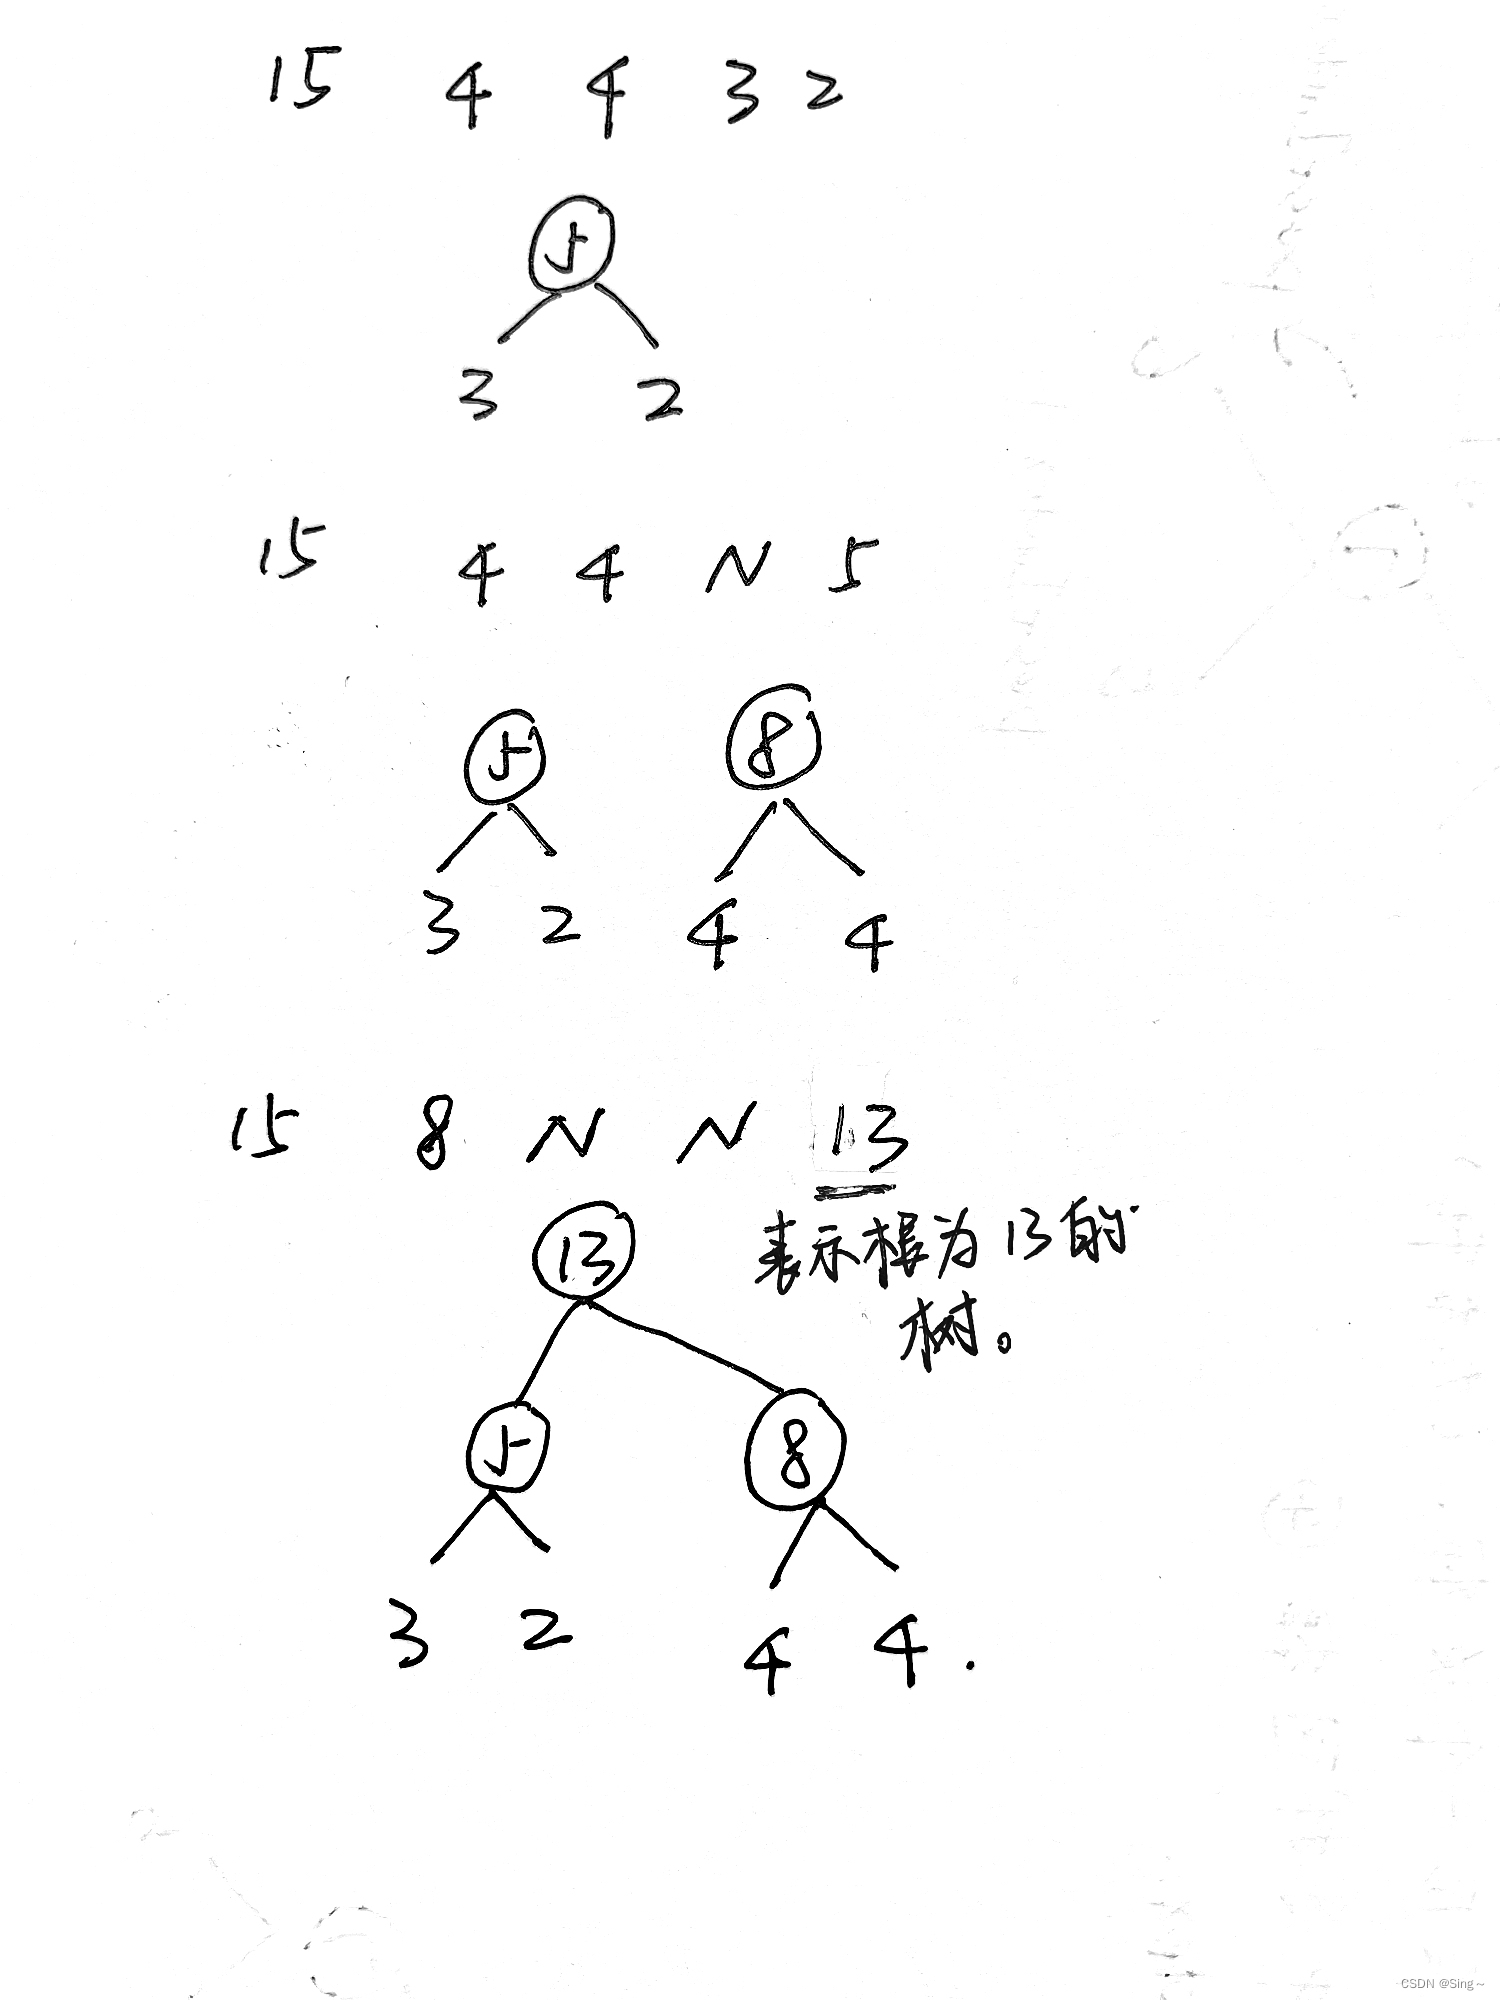 15 4 4 3 2
5
3 2
15 4 4 N 5
5 8
3 2 4 4
15 8 N N 13
13 表示根为13的
树。
5 8
3 2 4 4.
CSDN @Sing～